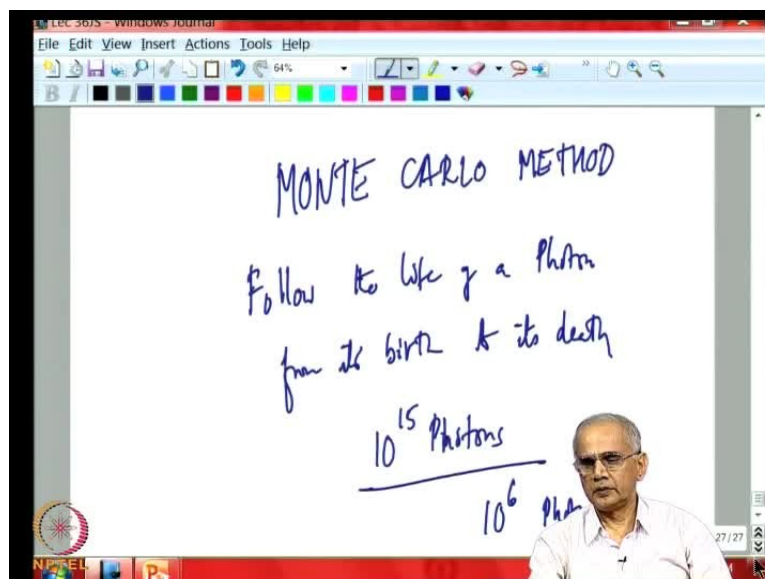 Lec 36JS - Windows Journal
File Edit View Insert Actions Tools Help
64%
B I
MONTE CARLO METHOD
Follow the life of a Photon
from its birth to its death
10^15 Photons
10^6 Phot
27/27
NPTEL